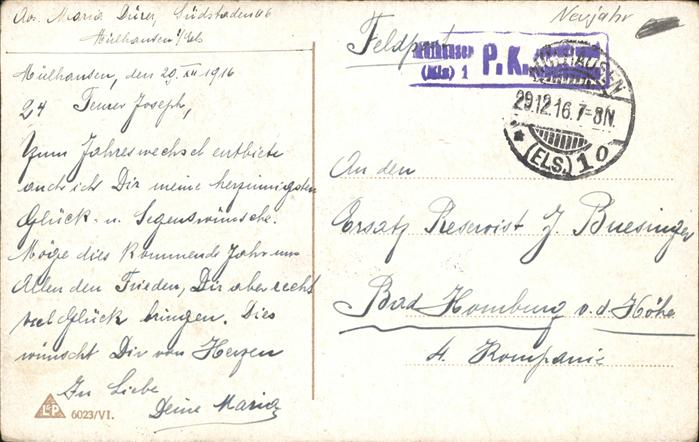 Abs. Maria Dürr, Südstaden 66
Mülhausen i/Els
Mülhausen, den 29. XII 1916
24 Teurer Joseph,
Zum Jahreswechsel entbiete
auch ich Dir meine herzinnigsten
Glück- u. Segenswünsche.
Möge dies kommende Jahr uns
Allen den Frieden, Dir aber recht
viel Glück bringen. Dies
wünscht Dir von Herzen
In Liebe
Deine Maria
L&P 6023/VI.
Neujahr
Feldpost
Mülhausen
(Els) 1 P.K.
MÜLHAUSEN
29.12.16.7-8N.
* (ELS.) 10
An den
Ersatz Reservist J Buesinger
Bad Homburg v. d. Höhe
4. Kompanie